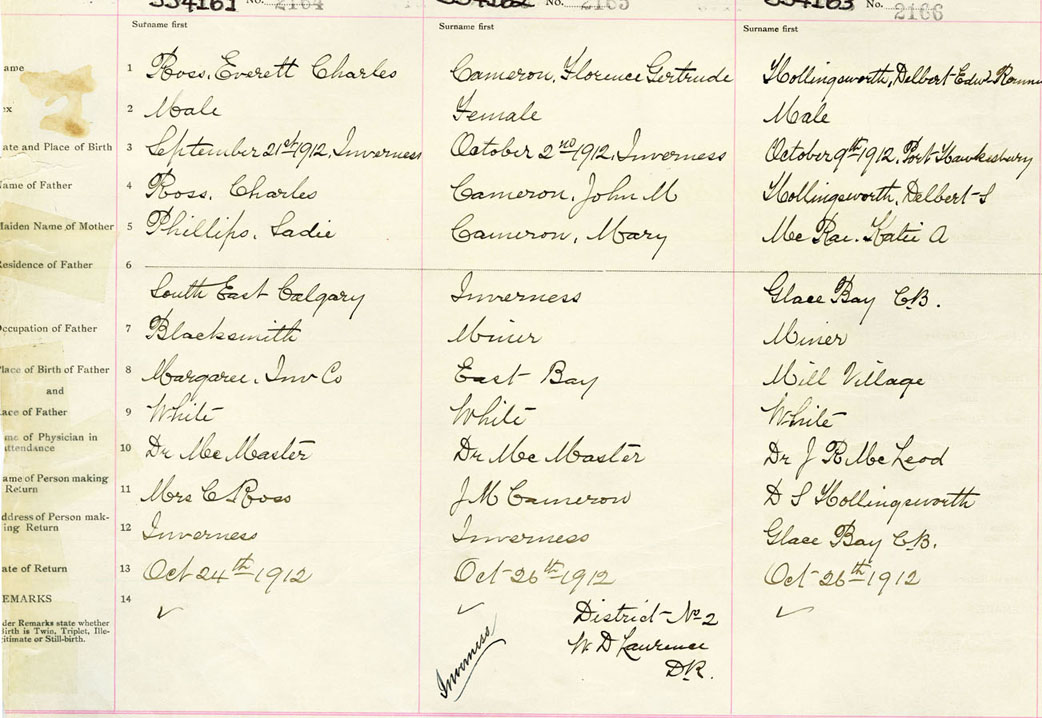 334161 No. 2164
334162 No. 2165
334163 No. 2166
Surname first
Surname first
Surname first
ame 1 Ross, Everett Charles Cameron, Florence Gertrude Hollingsworth, Delbert Edw.
ex 2 Male Female Male
ate and Place of Birth 3 September 21st 1912, Inverness October 2nd 1912, Inverness October 9th 1912, Port Hawkesbury
ame of Father 4 Ross, Charles Cameron, John M Hollingsworth, Delbert S
Maiden Name of Mother 5 Phillips, Sadie Cameron, Mary Mc Rae, Katie A
Residence of Father 6
South East Calgary Inverness Glace Bay C.B.
Occupation of Father 7 Blacksmith Miner Miner
Place of Birth of Father 8 Margaree, Inv Co East Bay Mill Village
and
ace of Father 9 White White White
me of Physician in
attendance 10 Dr Mc Master Dr Mc Master Dr J R Mc Leod
ame of Person making
Return 11 Mrs C Ross J M Cameron D S Hollingsworth
ddress of Person mak-
ing Return 12 Inverness Inverness Glace Bay C.B.
ate of Return 13 Oct 24th 1912 Oct 26th 1912 Oct 26th 1912
EMARKS 14
der Remarks state whether
Birth is Twin, Triplet, Ille-
gitimate or Still-birth.
Inverness
District No 2
W D Lawrence
D.R.